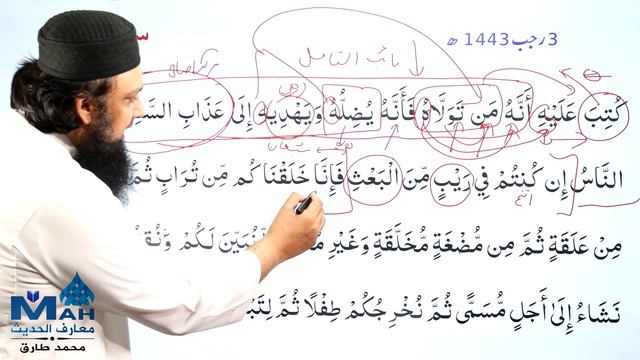 3 رجب 1443 ھ
نائب الفاعل
كُتِبَ عَلَيْهِ أَنَّهُ مَن تَوَلَّاهُ فَأَنَّهُ يُضِلُّهُ وَيَهْدِيهِ إِلَىٰ عَذَابِ
النَّاسُ إِن كُنتُمْ فِي رَيْبٍ مِّنَ الْبَعْثِ فَإِنَّا خَلَقْنَاكُم مِّن تُرَابٍ ثُمَّ
مِنْ عَلَقَةٍ ثُمَّ مِن مُّضْغَةٍ مُّخَلَّقَةٍ وَغَيْرِ لِّنُبَيِّنَ لَكُمْ وَنُقِرُّ
نَشَاءُ إِلَىٰ أَجَلٍ مُّسَمًّى ثُمَّ نُخْرِجُكُمْ طِفْلًا ثُمَّ
MAH
معارف الحديث
محمد طارق